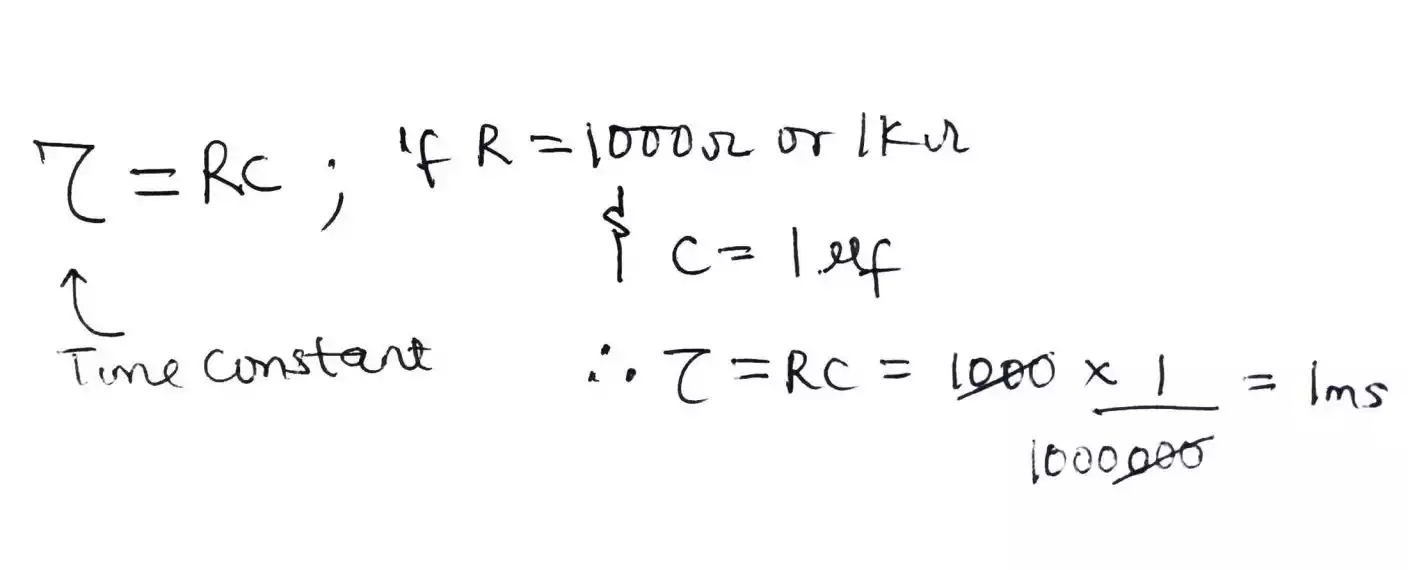 τ = RC ; if R = 1000Ω or 1KΩ
& C = 1 μf
↑
Time constant
∴ τ = RC = 1000 × 1/1000000 = 1ms